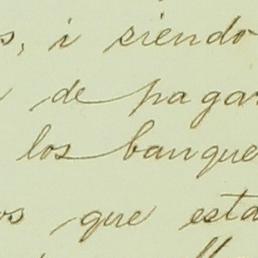 s, i siendo
de pagar
los banque
os que esta